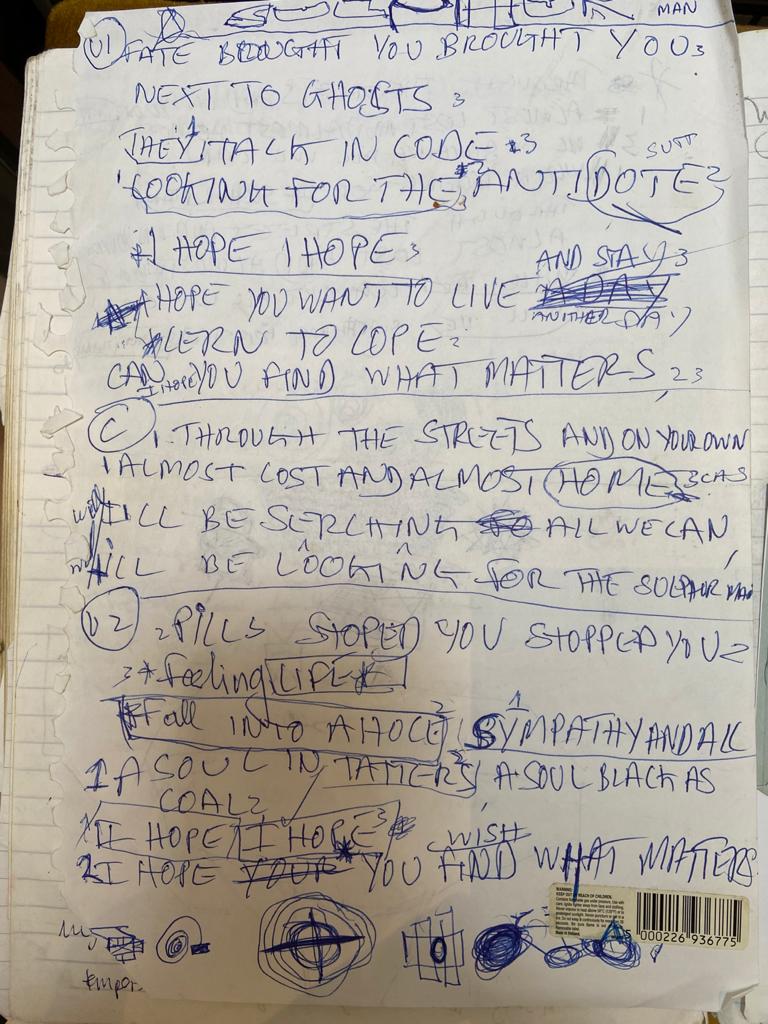 MAN
V1 FATE BROUGHT YOU BROUGHT YOU 3
NEXT TO GHOSTS 3
1
THEY TALK IN CODE 3
LOOKING FOR THE ANTIDOTE 2
I HOPE I HOPE 3
AND STAY 3
HOPE YOU WANT TO LIVE A DAY
ANITHER DAY
LERN TO COPE 2
CAN I HOPE YOU FIND WHAT MATTERS 23
C 1 THROUGH THE STREETS AND ON YOUR OWN
1 ALMOST LOST AND ALMOST HOME 3
WILL BE SERCHING ALL WE CAN
WILL BE LOOKING FOR THE SULPHUR MAN
V2 2 PILLS STOPED YOU STOPPED YOU 2
3 * feeling LIFE
Fall INTO A HOLE 2 1 SYMPATHY AND ALL
1 A SOUL IN TATTERS 2 A SOUL BLACK AS
COAL 2
I HOPE I HOPE 3
WISH
2 I HOPE YOUR YOU FIND WHAT MATTERS
WARNING
KEEP OUT OF REACH OF CHILDREN.
5 000226 936775